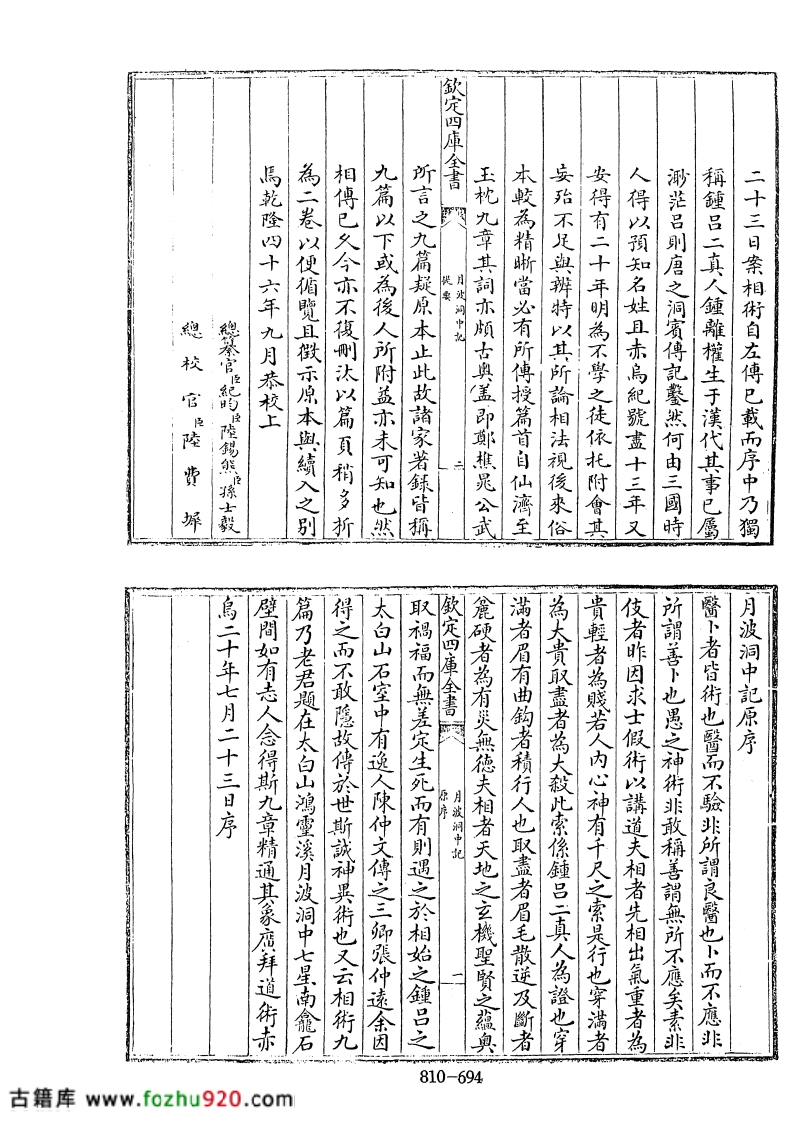 二十三日案相術自左傳已載而序中乃獨
稱鍾呂二真人鍾離權生于漢代其事已屬
渺茫呂則唐之洞賓傳記鑿然何由三國時
人得以預知名姓且赤烏紀號盡十三年又
安得有二十年明為不學之徒依托附會其
妄殆不足與辨特以其所論相法視後來俗
本較為精晰當必有所傳授篇首自仙濟至
玉枕九章其詞亦頗古奧蓋即鄭樵晁公武
欽定四庫全書
月波洞中記
提要
二
所言之九篇疑原本止此故諸家著錄皆稱
九篇以下或為後人所附益亦未可知也然
相傳已久今亦不復刪汰以篇頁稍多折
為二卷以便循覽且徵示原本與續入之別
焉乾隆四十六年九月恭校上
總纂官臣紀昀臣陸錫熊臣孫士毅
總校官臣陸費墀
月波洞中記原序
醫卜者皆術也醫而不驗非所謂良醫也卜而不應非
所謂善卜也愚之神術非敢稱善謂無所不應矣素非
伎者昨因求士假術以講道夫相者先相出氣重者為
貴輕者為賤若人內心神有千尺之索是行也穿滿者
為大貴取盡者為大殺此索係鍾呂二真人為證也穿
滿者眉有曲鈎者積行人也取盡者眉毛散逆及斷者
麄硬者為有災無德夫相者天地之玄機聖賢之蘊奧
欽定四庫全書
月波洞中記
原序
一
取禍福而無差定生死而有則遇之於相始之鍾呂之
太白山石室中有逸人陳仲文傳之三卿張仲遠余因
得之而不敢隱故傳於世斯誠神異術也又云相術九
篇乃老君題在太白山鴻靈溪月波洞中七星南龕石
壁間如有志人念得斯九章精通其象廣拜道術赤
烏二十年七月二十三日序
810-694
古籍库 www.fozhu920.com